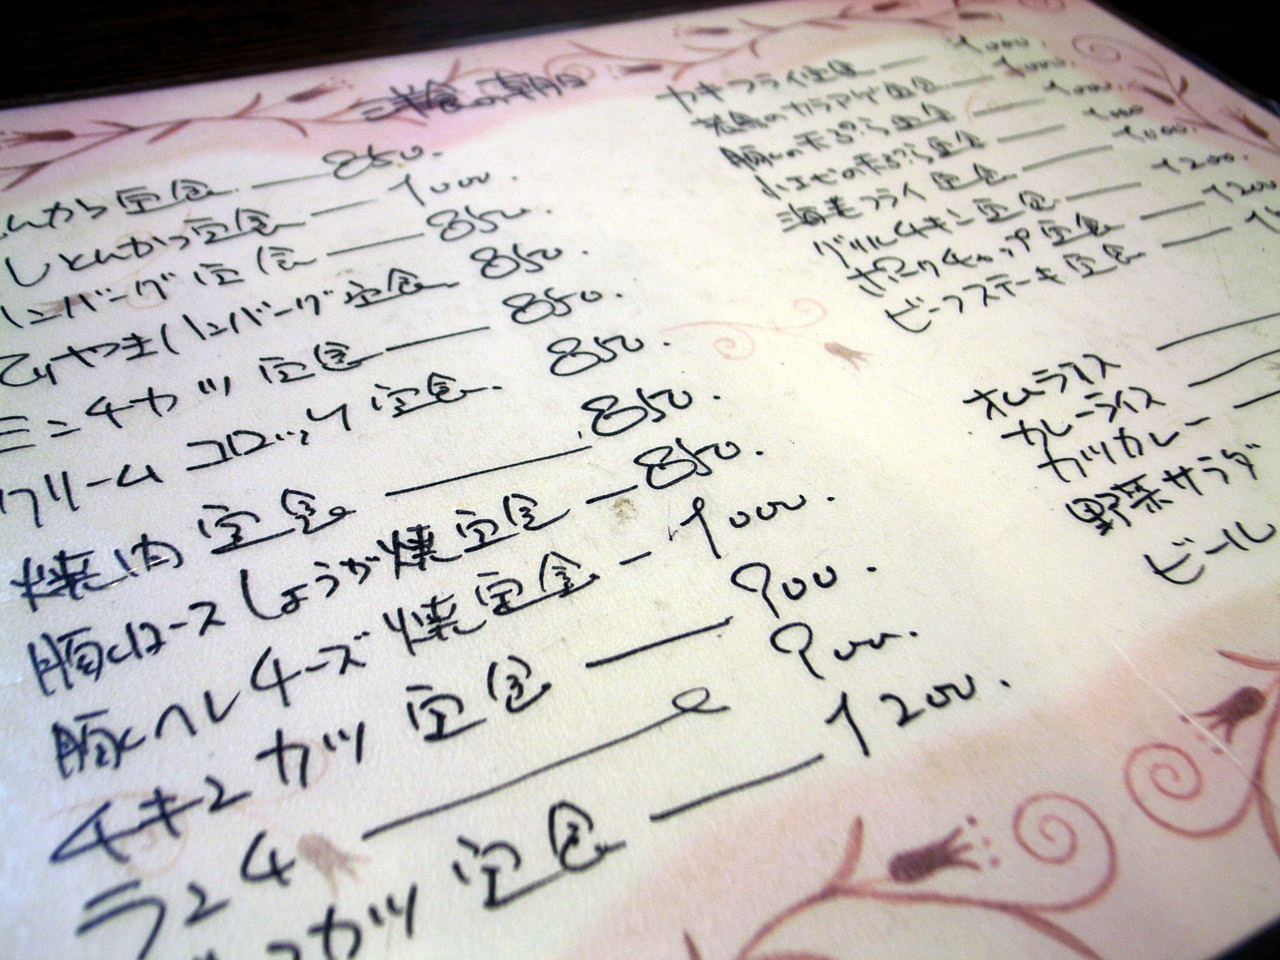 洋食の朝日
んかつ定食 — 850.
しとんかつ定食 — 1000.
ハンバーグ定食 — 850.
てりやきハンバーグ定食 850.
ミンチカツ定食 — 850.
クリームコロッケ定食. 850.
焼肉定食 — 850.
豚ロースしょうが焼定食 — 850.
豚ヘレチーズ焼定食 — 1000.
チキンカツ定食 — 900.
ランチ — 900.
カツ定食 — 1200.
カキフライ定食 — 1000.
若鳥のカラアゲ定食 — 1000.
豚の天ぷら定食 — 1000.
小エビの天ぷら定食 — 1000
海老フライ定食 — 1000.
グリルチキン定食 — 1200.
ポークチャップ定食 — 1200
ビーフステーキ定食 —
オムライス —
カレーライス —
カツカレー —
野菜サラダ
ビール